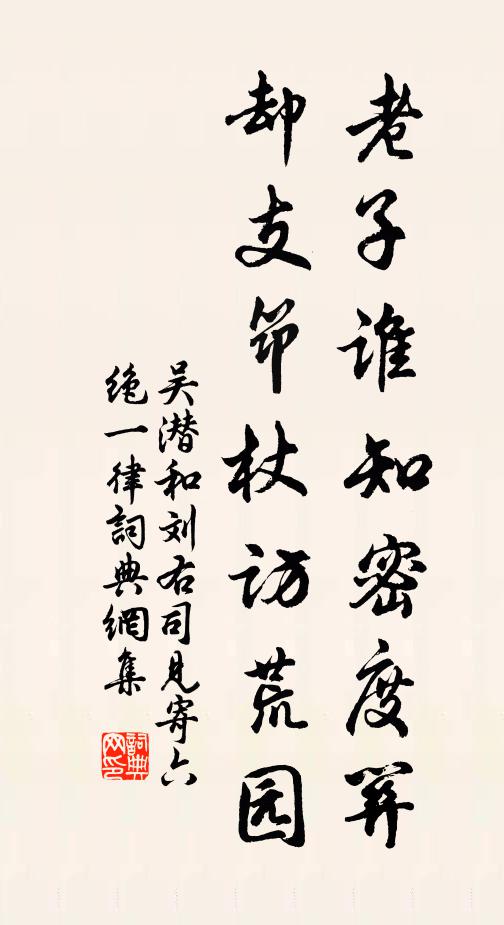 老子谁知密度羿
却支笻杖访荒园
吴潜和刘右司见寄六
绝一律詞典網集
詞典
网印